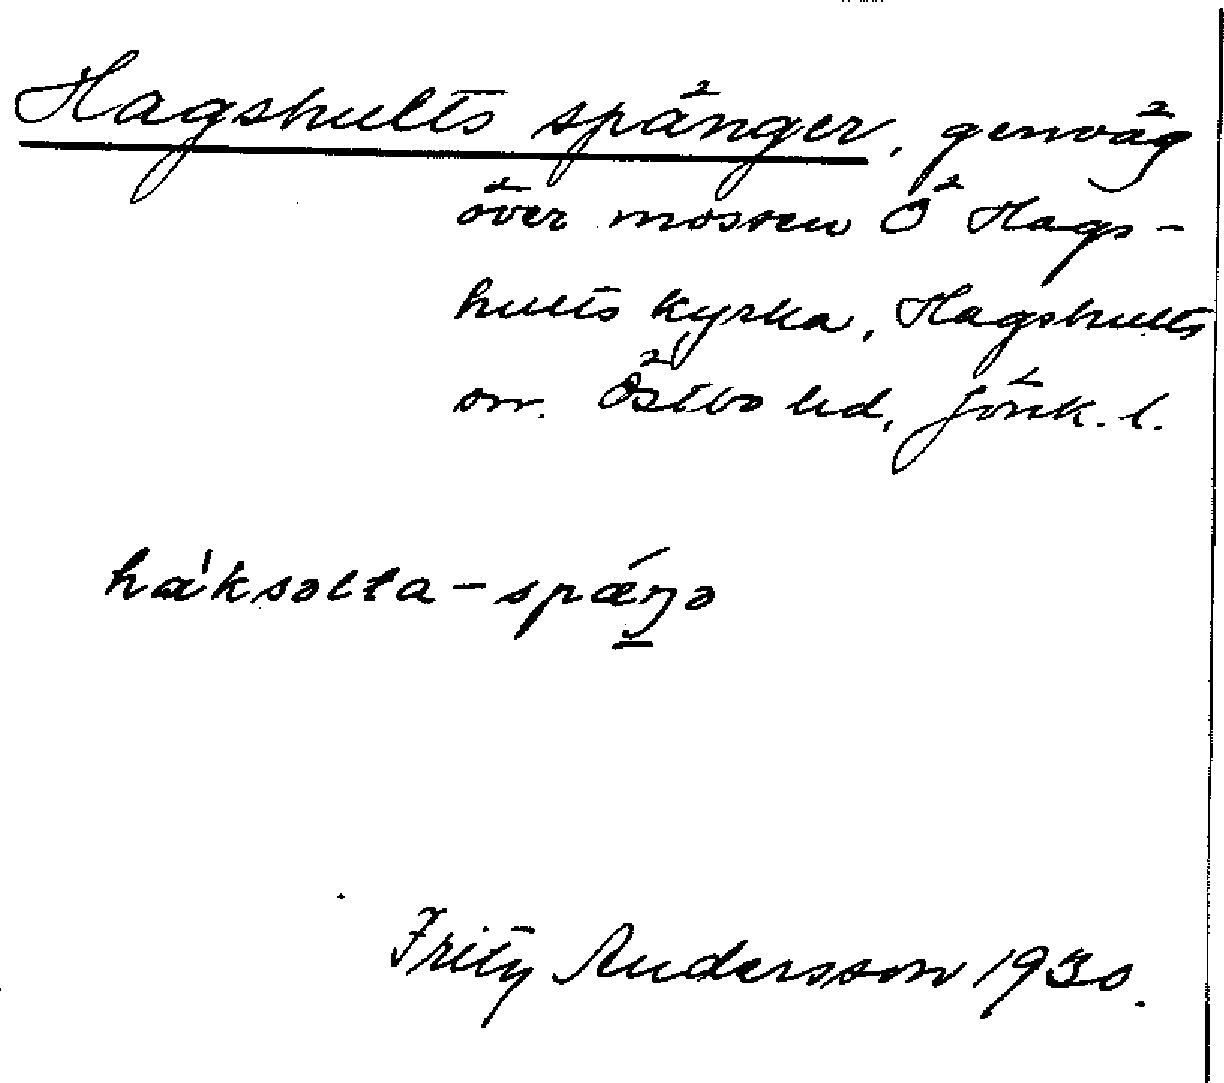 Hagshults spänger, genväg
över mossen Ö Hags-
hults kyrka, Hagshults
sn. Östbo hd, Jönk. l.
há̍ksəlta-spǽŋə
Fritz Andersson 1930.